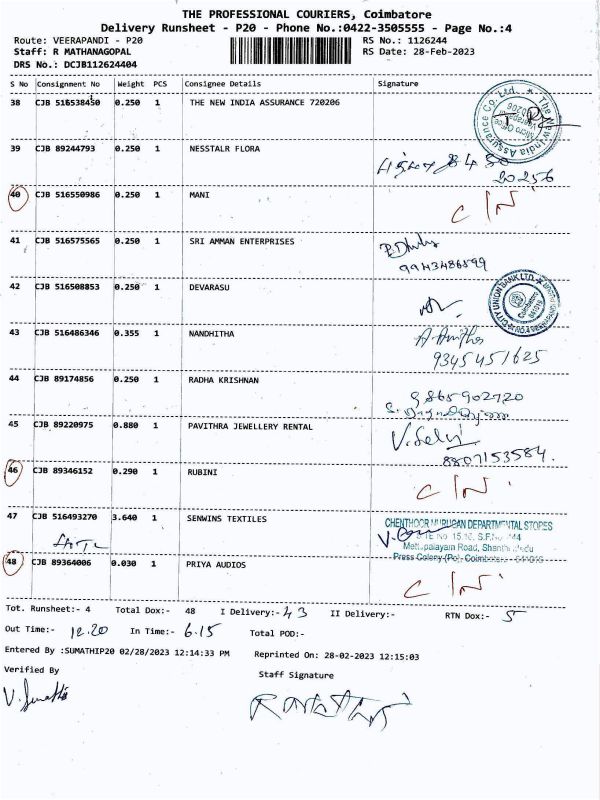 THE PROFESSIONAL COURIERS, Coimbatore
Delivery Runsheet - P20 - Phone No.:0422-3505555 - Page No.:4
Route: VEERAPANDI - P20 RS No.: 1126244
Staff: R MATHANAGOPAL RS Date: 28-Feb-2023
DRS No.: DCJB112624404
S No Consignment No Weight PCS Consignee Details Signature
38 CJB 516538450 0.250 1 THE NEW INDIA ASSURANCE 720206
39 CJB 89244793 0.250 1 NESSTALR FLORA
20256
40 CJB 516550986 0.250 1 MANI C IN
41 CJB 516575565 0.250 1 SRI AMMAN ENTERPRISES
9943486899
42 CJB 516508853 0.250 1 DEVARASU
43 CJB 516486346 0.355 1 NANDHITHA
9345451625
44 CJB 89174856 0.250 1 RADHA KRISHNAN
9865902720
45 CJB 89220975 0.880 1 PAVITHRA JEWELLERY RENTAL V. Selvi
8807153584.
46 CJB 89346152 0.290 1 RUBINI C IN
47 CJB 516493270 3.640 1 SENWINS TEXTILES CHENTHOOR MURUGAN DEPARTMENTAL STORES
48 CJB 89364006 0.030 1 PRIYA AUDIOS C IN
Tot. Runsheet:- 4 Total Dox:- 48 I Delivery:- 43 II Delivery:- RTN Dox:- 5
Out Time:- 12.20 In Time:- 6.15 Total POD:-
Entered By :SUMATHIP20 02/28/2023 12:14:33 PM Reprinted On: 28-02-2023 12:15:03
Verified By Staff Signature